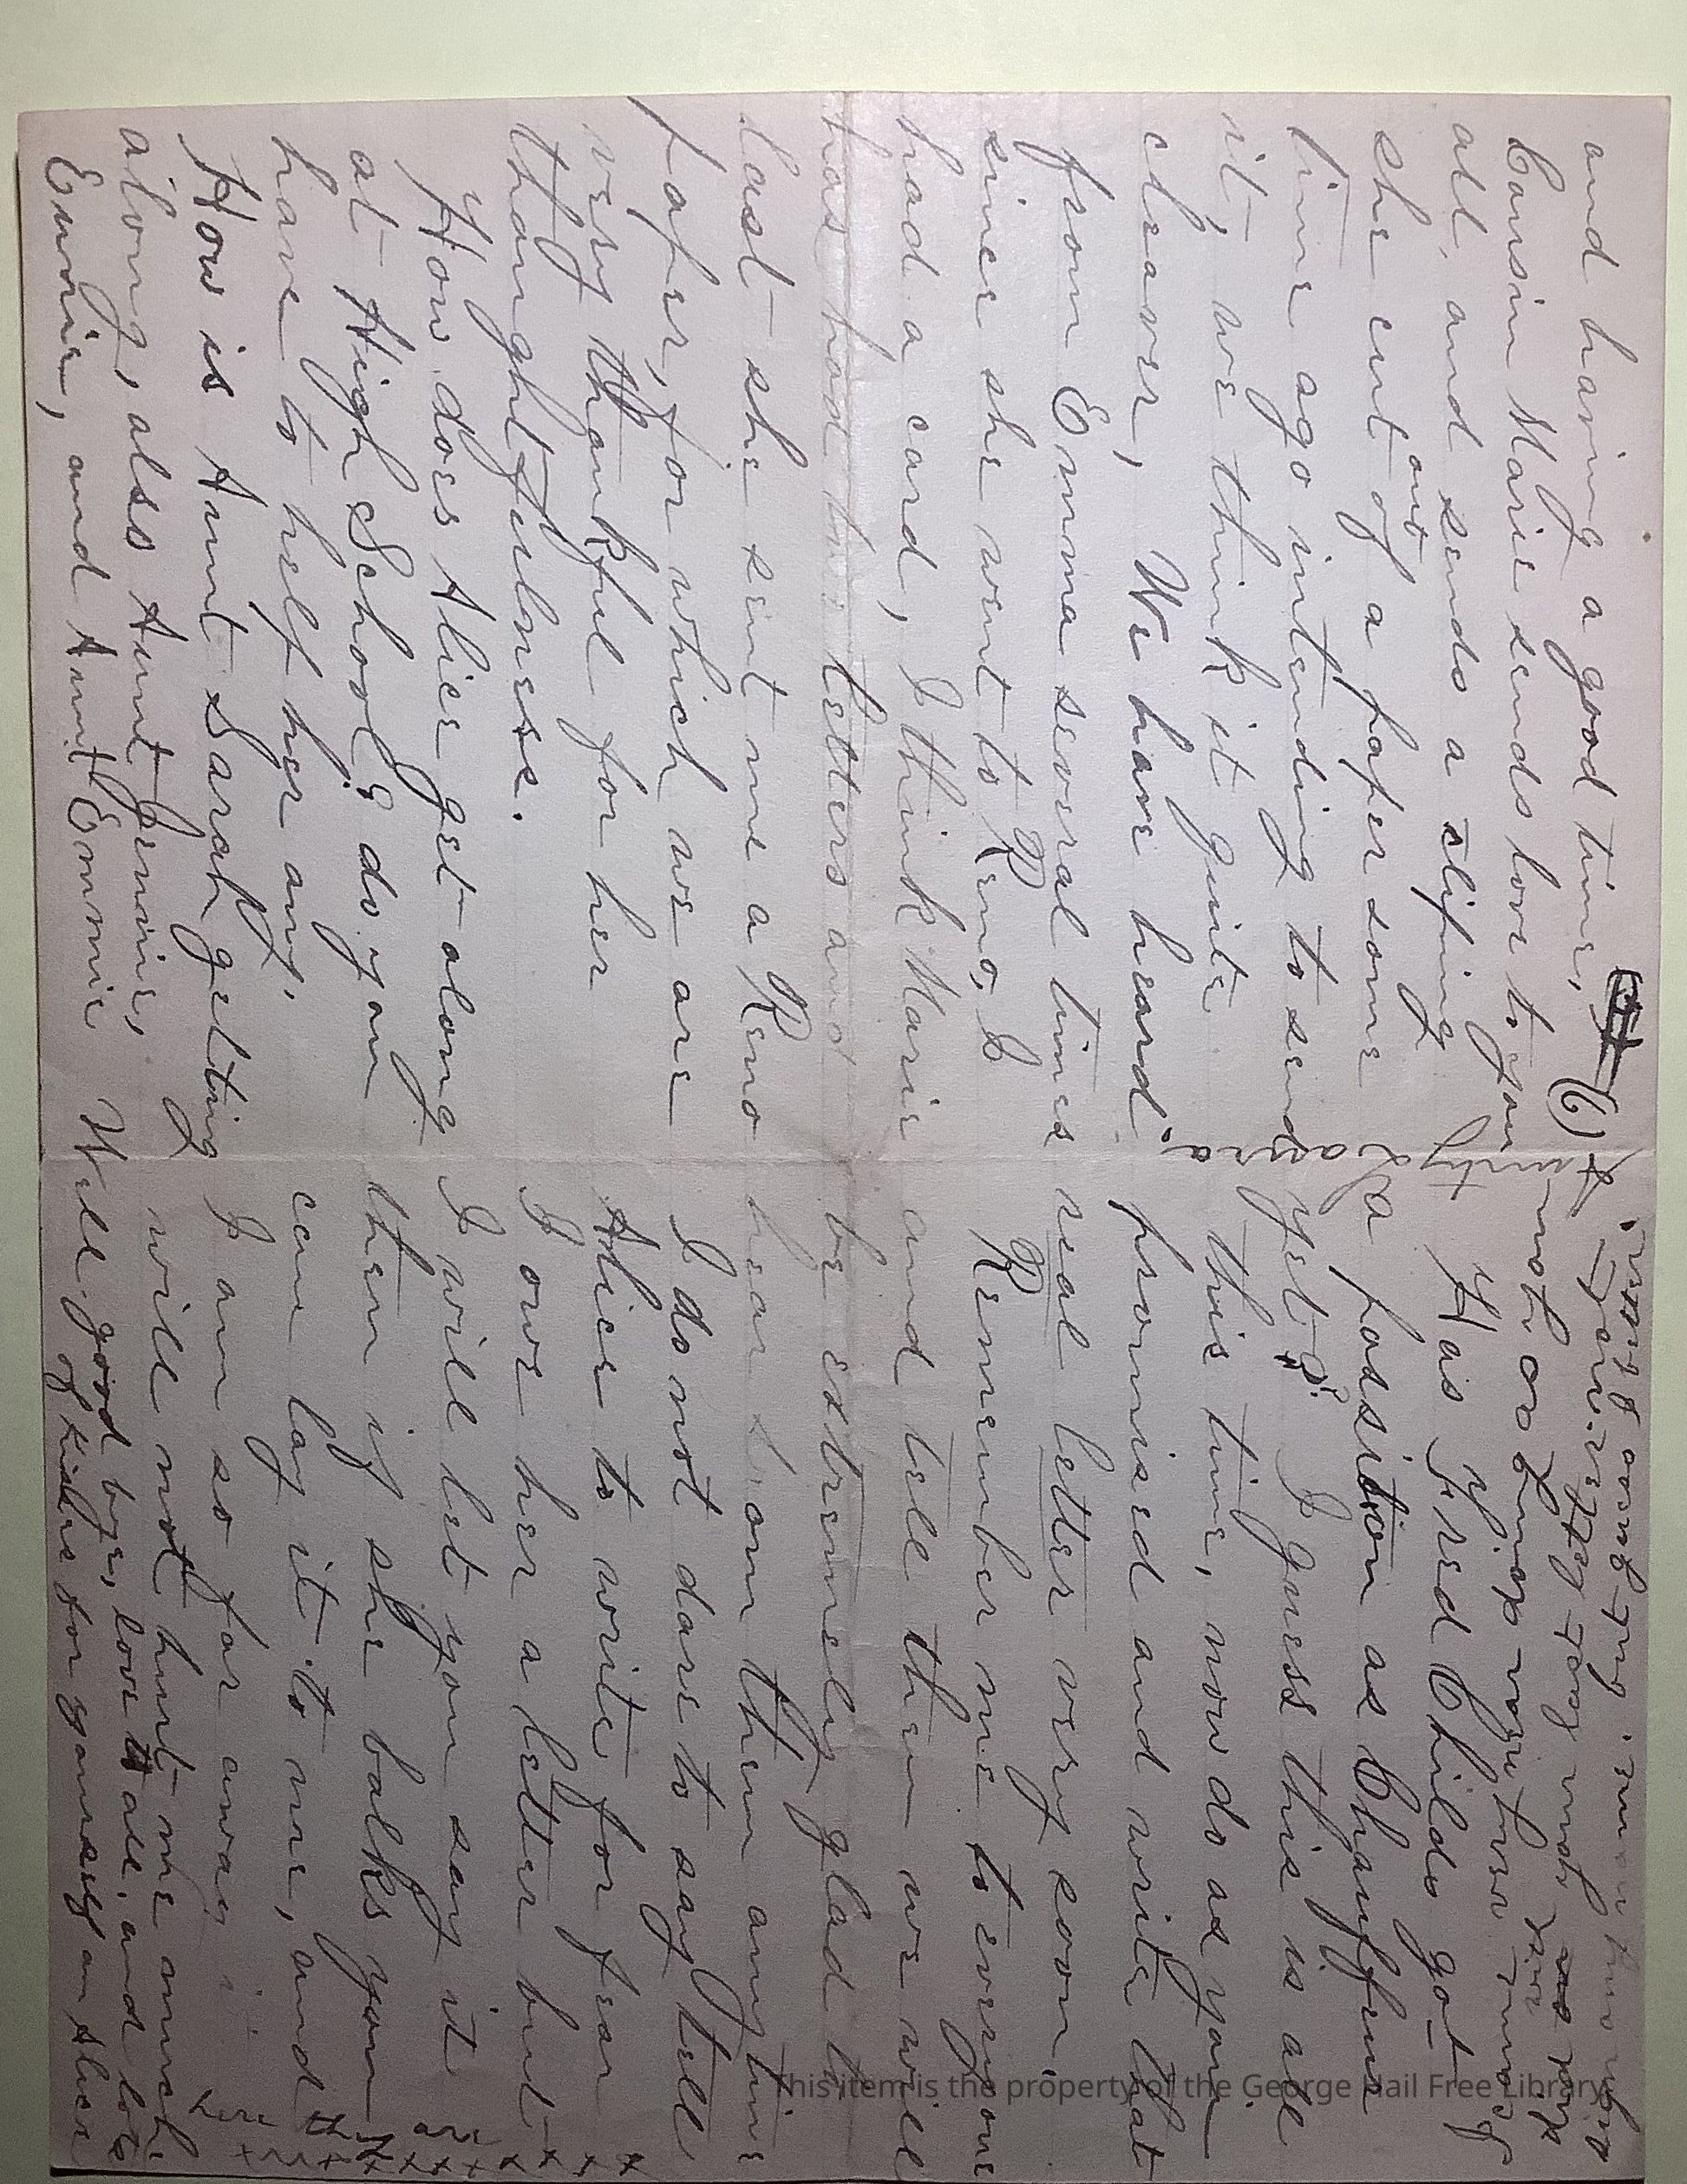 and having a good time,
Cousin Marie sends love to you
all, and sends a cliping
she cut out of a paper some
time ago intending to send
it, we think it quite
cleaver, We have heard
from Emma several times
since she went to Reno, I
had a card, I think Marie
has had two letters and
last she sent me a Reno
Paper, for which we are
very thankful for her
thoughtfulness.
How does Alice get along
at High School? do you
have to help her any,
How is Aunt Sarah getting
along, also Aunt Jennie,
Eunie, and Aunt Emmie
(6)
Has Fred Childs got
a position as Chauffeur
yet? I guess this is all
this time, now do as you
promised and write that
real letter very soon.
Remember me to everyone
and tell them we will
be extremely glad to
hear from them anytime
I do not dare to say tell
Alice to write for fear
I owe her a letter but
I will let you say it
then if she balks you
can lay it to me, and
I am so far away it
will not hurt me much.
Well good bye, love to all, and lots
of kisses for yourself an Alice
here they are
x x x x x x x x x x
Aunty Laura
This item is the property of the George Hail Free Library.